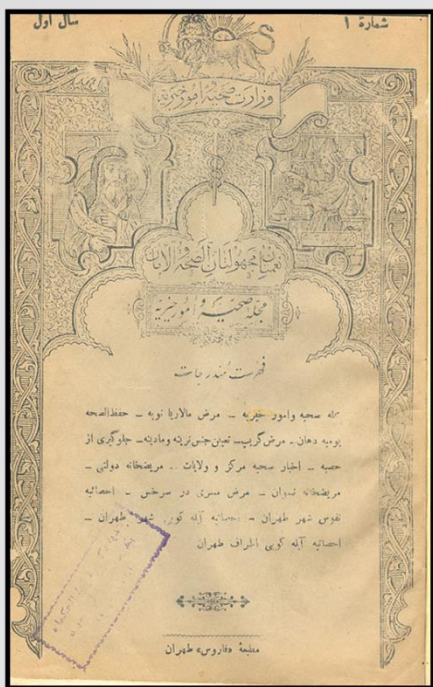 شمارهٔ ۱
سال اول
وزارت صحیه و امور خیریه
نعمتان مجهولتان الصحة و الامان
مجلهٔ صحیه و امور خیریه
فهرست مندرجات
صحیه وامور خیریه ــ مرض مالاریا نوبه ــ حفظ‌الصحه
یومیه دهان ــ مرض گریپ ــ تعیین جنس نرینه ومادینه ــ جلوگیری از
حصبه ــ اخبار صحیه مرکز و ولایات ــ مریضخانه دولتی ــ
مریضخانه نسوان ــ مرض مسری در سرخس ــ احصائیه
نفوس شهر طهران ــ احصائیه آبله کوبی شهر طهران ــ
احصائیه آبله کوبی اطراف طهران
مطبعهٔ «فاروس» طهران